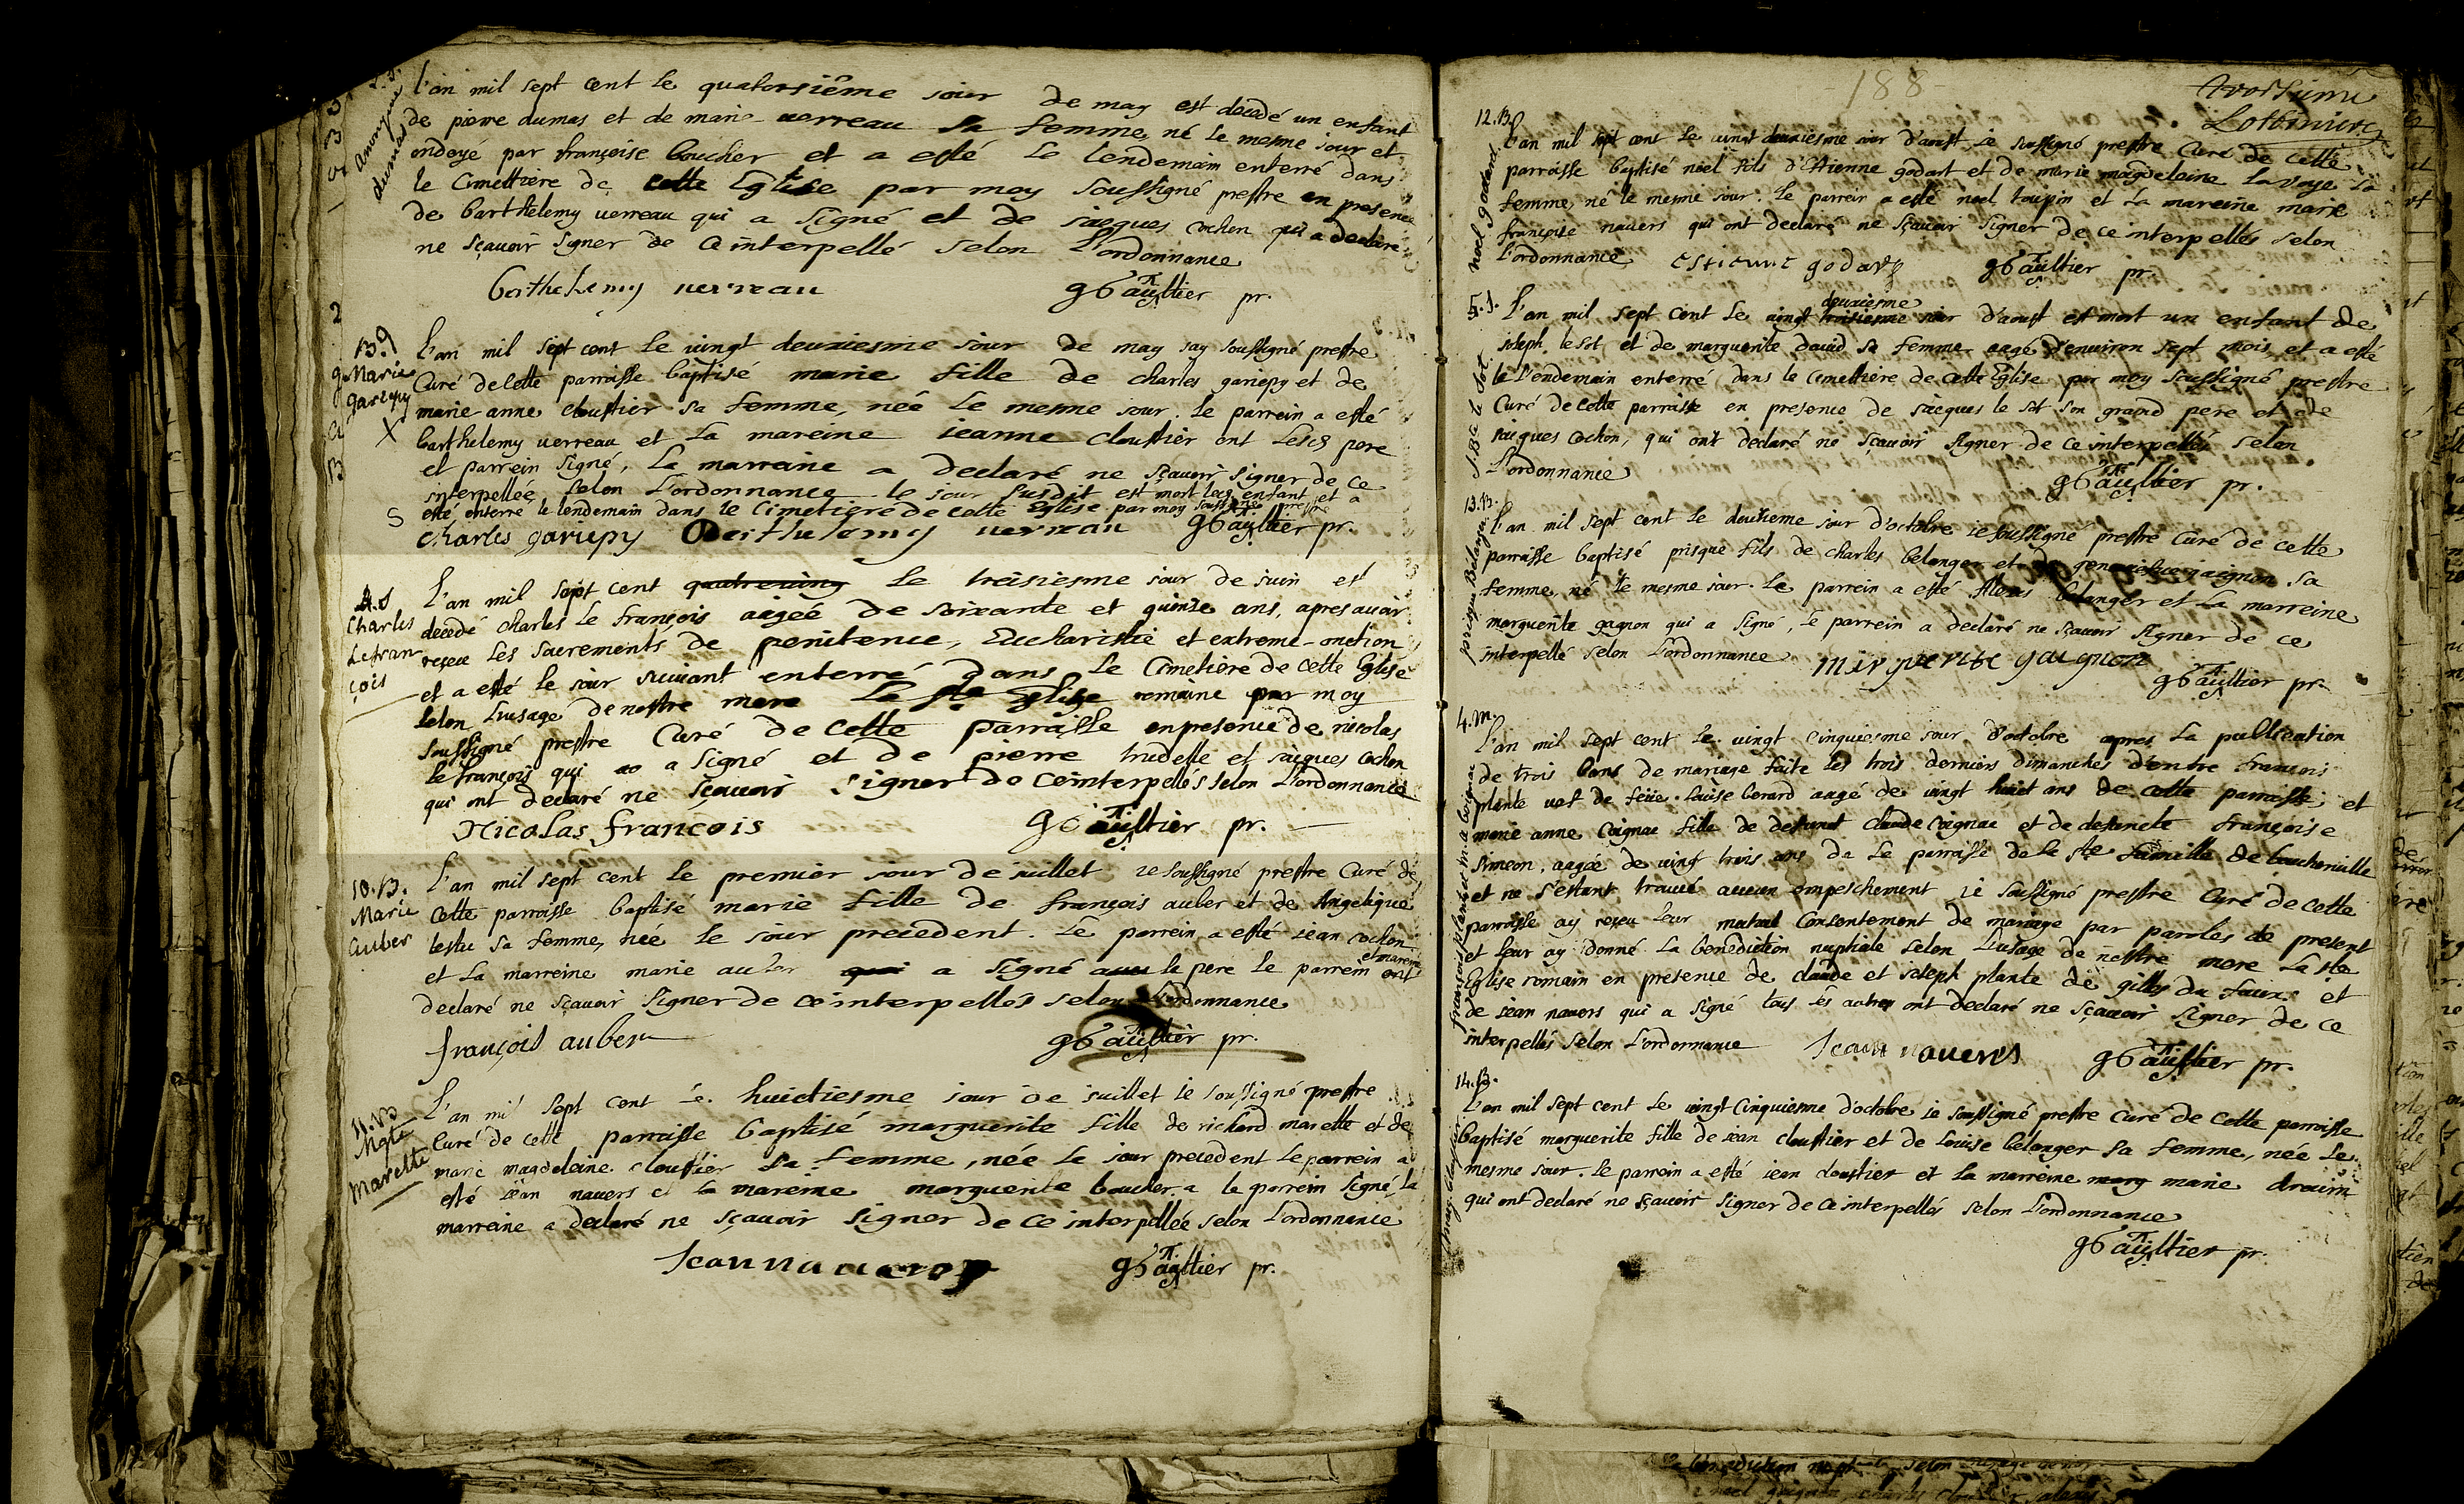 Anonyme
dumas
l'an mil sept cent le quatorsième jour de may est decedé un enfant
de pierre dumas et de marie verreau sa femme, né le mesme jour et
ondoyé par françoise boucher et a esté le lendemain enterré dans
le cimettière de cette Eglise par moy soussigné prestre en presence
de barthelemy verreau qui a signé et de jacques cochon qui a declaré
ne sçavoir signer de ce interpellé selon l'ordonnance
berthelemy verreau gGaultier pr.
B.9
Marie
gariepy
X
L'an mil sept cent le vingt deuxiesme jour de may jay soussigné prestre
Curé de cette parroisse baptisé marie fille de charles gariepy et de
marie anne cloustier sa femme, née le mesme jour. le parrein a esté
barthelemy verreau et La mareine jeanne cloustier ont lesds pere
et parrein signé, la marraine a declaré ne sçavoir signer de ce
interpellée selon l'ordonnance le jour susdit est mort led enfant et a
esté enterré le lendemain dans le cimetière de cette Eglise par moy soussigné prestre
charles gariepy Berthelemy verreau gGaultier pr.
4.s
Charles
Lefran
çois
L'an mil sept cent quatreving le treisiesme jour de juin est
decedé charles le françois aagée de soixante et quinze ans, apres avoir
reçeu les sacrements de penitence, Eucharistie et extreme-onction
et a esté le jour suivant enterré dans le Cimetière de cette Eglise
selon l'usage de nostre mere La ste Eglise romaine par moy
soussigné prestre Curé de cette parraisse en presence de nicolas
le françois qui a signé et de pierre trudelle et jacques cochon
qui ont declaré ne sçavoir signer de ce interpellés selon l'ordonnance
Nicolas françois gGaultier pr.
10.B.
Marie
auber
L'an mil sept cent le premier jour de juillet je soussigné prestre Curé de
cette parroisse baptisé marie fille de françois auber et de Angelique
lestu sa femme, née le jour precedent. Le parrein a esté jean cochon
et mareine
et La marreine marie auber qui a signé avec le pere le parrein ont
declaré ne sçavoir signer de ce interpellés selon l'ordonnance
françois auber gGaultier pr.
11.B
Mgte
Marette
L'an mil sept cent le huictiesme jour de juillet je soussigné prestre
Curé de cette parroisse baptisé marguerite fille de richard marette et de
marie magdeleine cloustier sa femme, née le jour precedent le parrein a
esté jean navers et la mareine marguerite boucher a le parrein signé, la
marreine a declaré ne sçavoir signer de ce interpellée selon l'ordonnance
Jean navers gGaultier pr.
188
Lotbiniere
12.B.
noel godard
l'an mil sept cent le vingt deuxiesme jour d'aoust je soussigné prestre Curé de cette
parroisse baptisé noel fils d'Etienne godart et de marie magdeleine la voye sa
femme, né le mesme jour. le parrein a esté noel toupin et la mareine marie
françoise navers qui ont declaré ne sçavoir signer de ce interpellés selon
l'ordonnance estienne godart gGaultier pr.
5.s.
J.Bte le Sot
deuxiesme
L'an mil sept cent le vingt troisiesme jour d'aoust est mort un enfant de
joseph le sot et de marguerite david sa femme aagé d'environ sept mois, et a esté
le l'endemain enterré dans le cimettière de cette Eglise par moy soussigné prestre
Curé de cette parroisse en presence de jacques le sot son grand pere et de
jacques cochon, qui ont declaré ne sçavoir signer de ce interpellés selon
l'ordonnance gGaultier pr.
13.B.
prisque Belanger
l'an mil sept cent le deuxieme jour d'octobre je soussigné prestre Curé de cette
parroisse baptisé prisque fils de charles belanger et de genevieve gaignon sa
femme, né le mesme jour. Le parrein a esté Alexis belanger et La marreine
marguerite gagnon qui a signé, le parrein a declaré ne sçavoir signer de ce
interpellé selon l'ordonnance marguerite gaignon gGaultier pr.
4.m.
françois plante et m a Coignac
l'an mil sept cent le vingt cinquiesme jour d'octobre apres La publication
de trois bans de mariage faite les trois derniers dimanches d'entre françois
plante vef de feüe louise berard aagé de vingt huict ans de cette parroisse et
marie anne Coignac fille de defunct claude coignac et de defuncte françoise
simeon, aagée de vingt trois ans de Le parroisse de la ste famille de boucherville
et ne s'estant trouvé aucun empeschement je soussigné prestre Curé de cette
parroisse ay reçeu leur mutuel consentement de mariage par paroles de present
et leur ay donné La benediction nuptiale selon l'usage de nostre mere La ste
Eglise romain en presence de claude et joseph plante de gilles du faux et
de jean navers qui a signé tous les autres ont declaré ne sçavoir signer de ce
interpellés selon l'ordonnance Jean navers gGaultier pr.
14.B.
L'an mil sept cent le vingt cinquiesme d'octobre je soussigné prestre Curé de cette parroisse
baptisé marguerite fille de jean cloustier et de louise belanger sa femme, née le
mesme jour. le parrein a esté jean cloustier et la marreine marg marie drouin
qui ont declaré ne sçavoir signer de ce interpellés selon l'ordonnance
gGaultier pr.